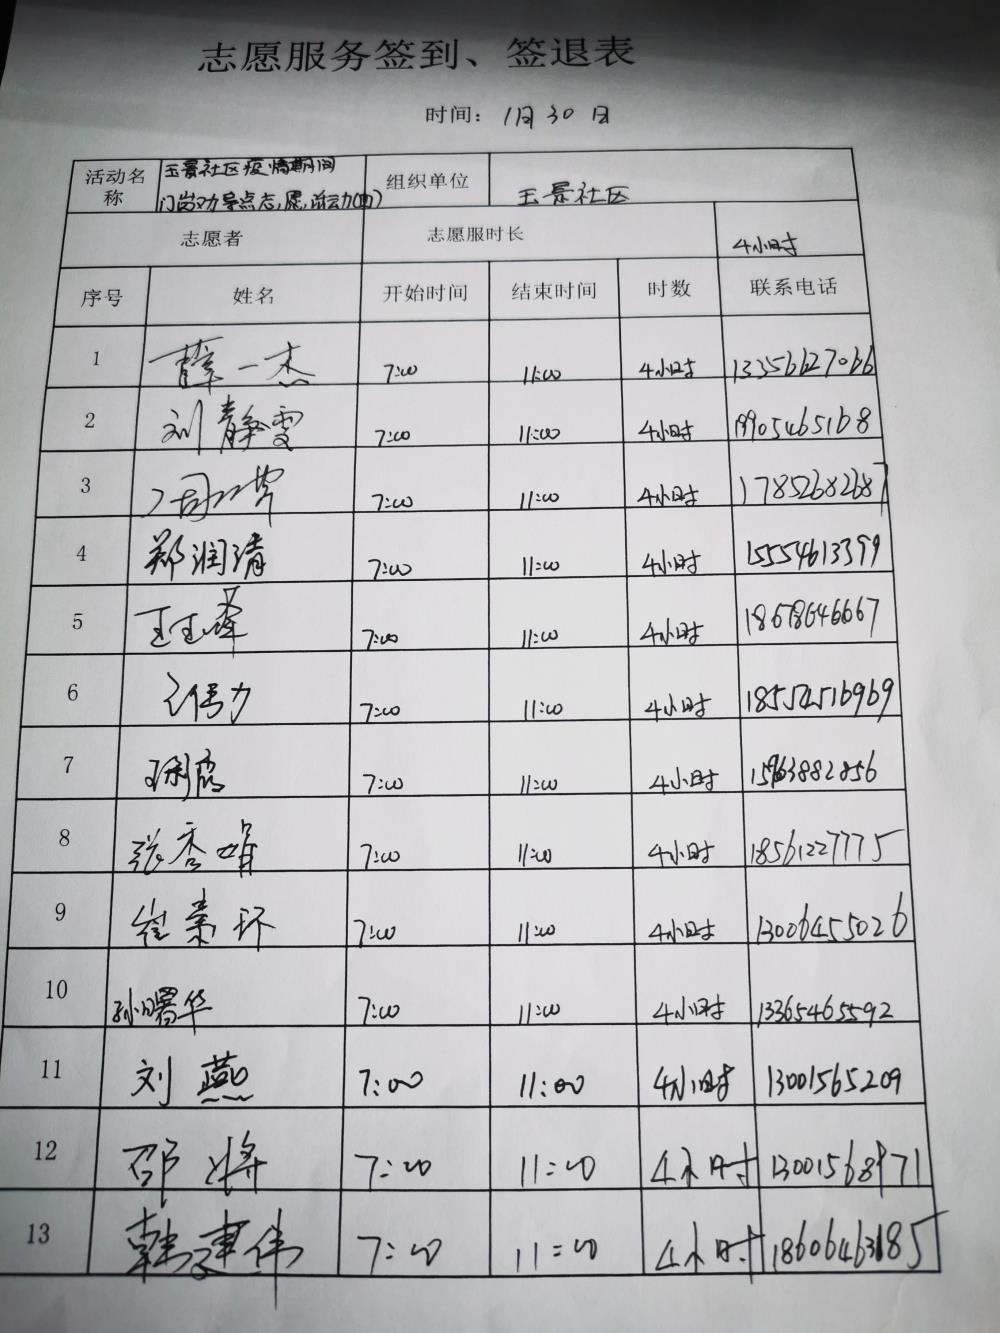 志愿服务签到、签退表
时间：1月30日
活动名称 玉景社区疫情期间 组织单位 玉景社区
门岗劝导点志愿活动(四)
志愿者 志愿服时长 4小时
序号 姓名 开始时间 结束时间 时数 联系电话
1 薛一杰 7:00 11:00 4小时 13356627066
2 刘静雯 7:00 11:00 4小时 19905465168
3 7:00 11:00 4小时 17852682687
4 郑润清 7:00 11:00 4小时 15554613399
5 7:00 11:00 4小时 18678646667
6 7:00 11:00 4小时
7 7:00 11:00 4小时 15963882856
8 张秀娟 7:00 11:00 4小时 18561227775
9 崔素环 7:00 11:00 4小时 13006455026
10 孙曙华 7:00 11:00 4小时 13365465592
11 刘燕 7:00 11:00 4小时 13001565209
12 邵将 7:00 11:00 4小时 13001568971
13 韩建伟 7:00 11:00 4小时 18606463185